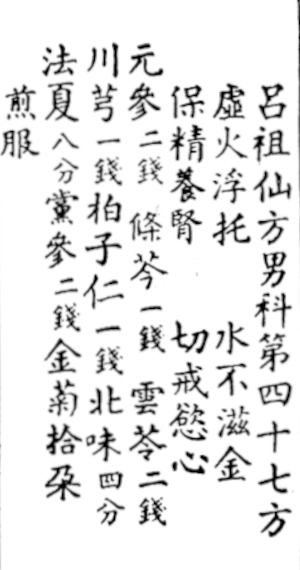 呂祖仙方男科第四十七方
虛火浮托 水不滋金
保精養腎 切戒慾心
元參二錢 條芩一錢 雲苓二錢
川芎一錢柏子仁一錢北味四分
法夏八分黨參二錢金菊拾朶
煎服